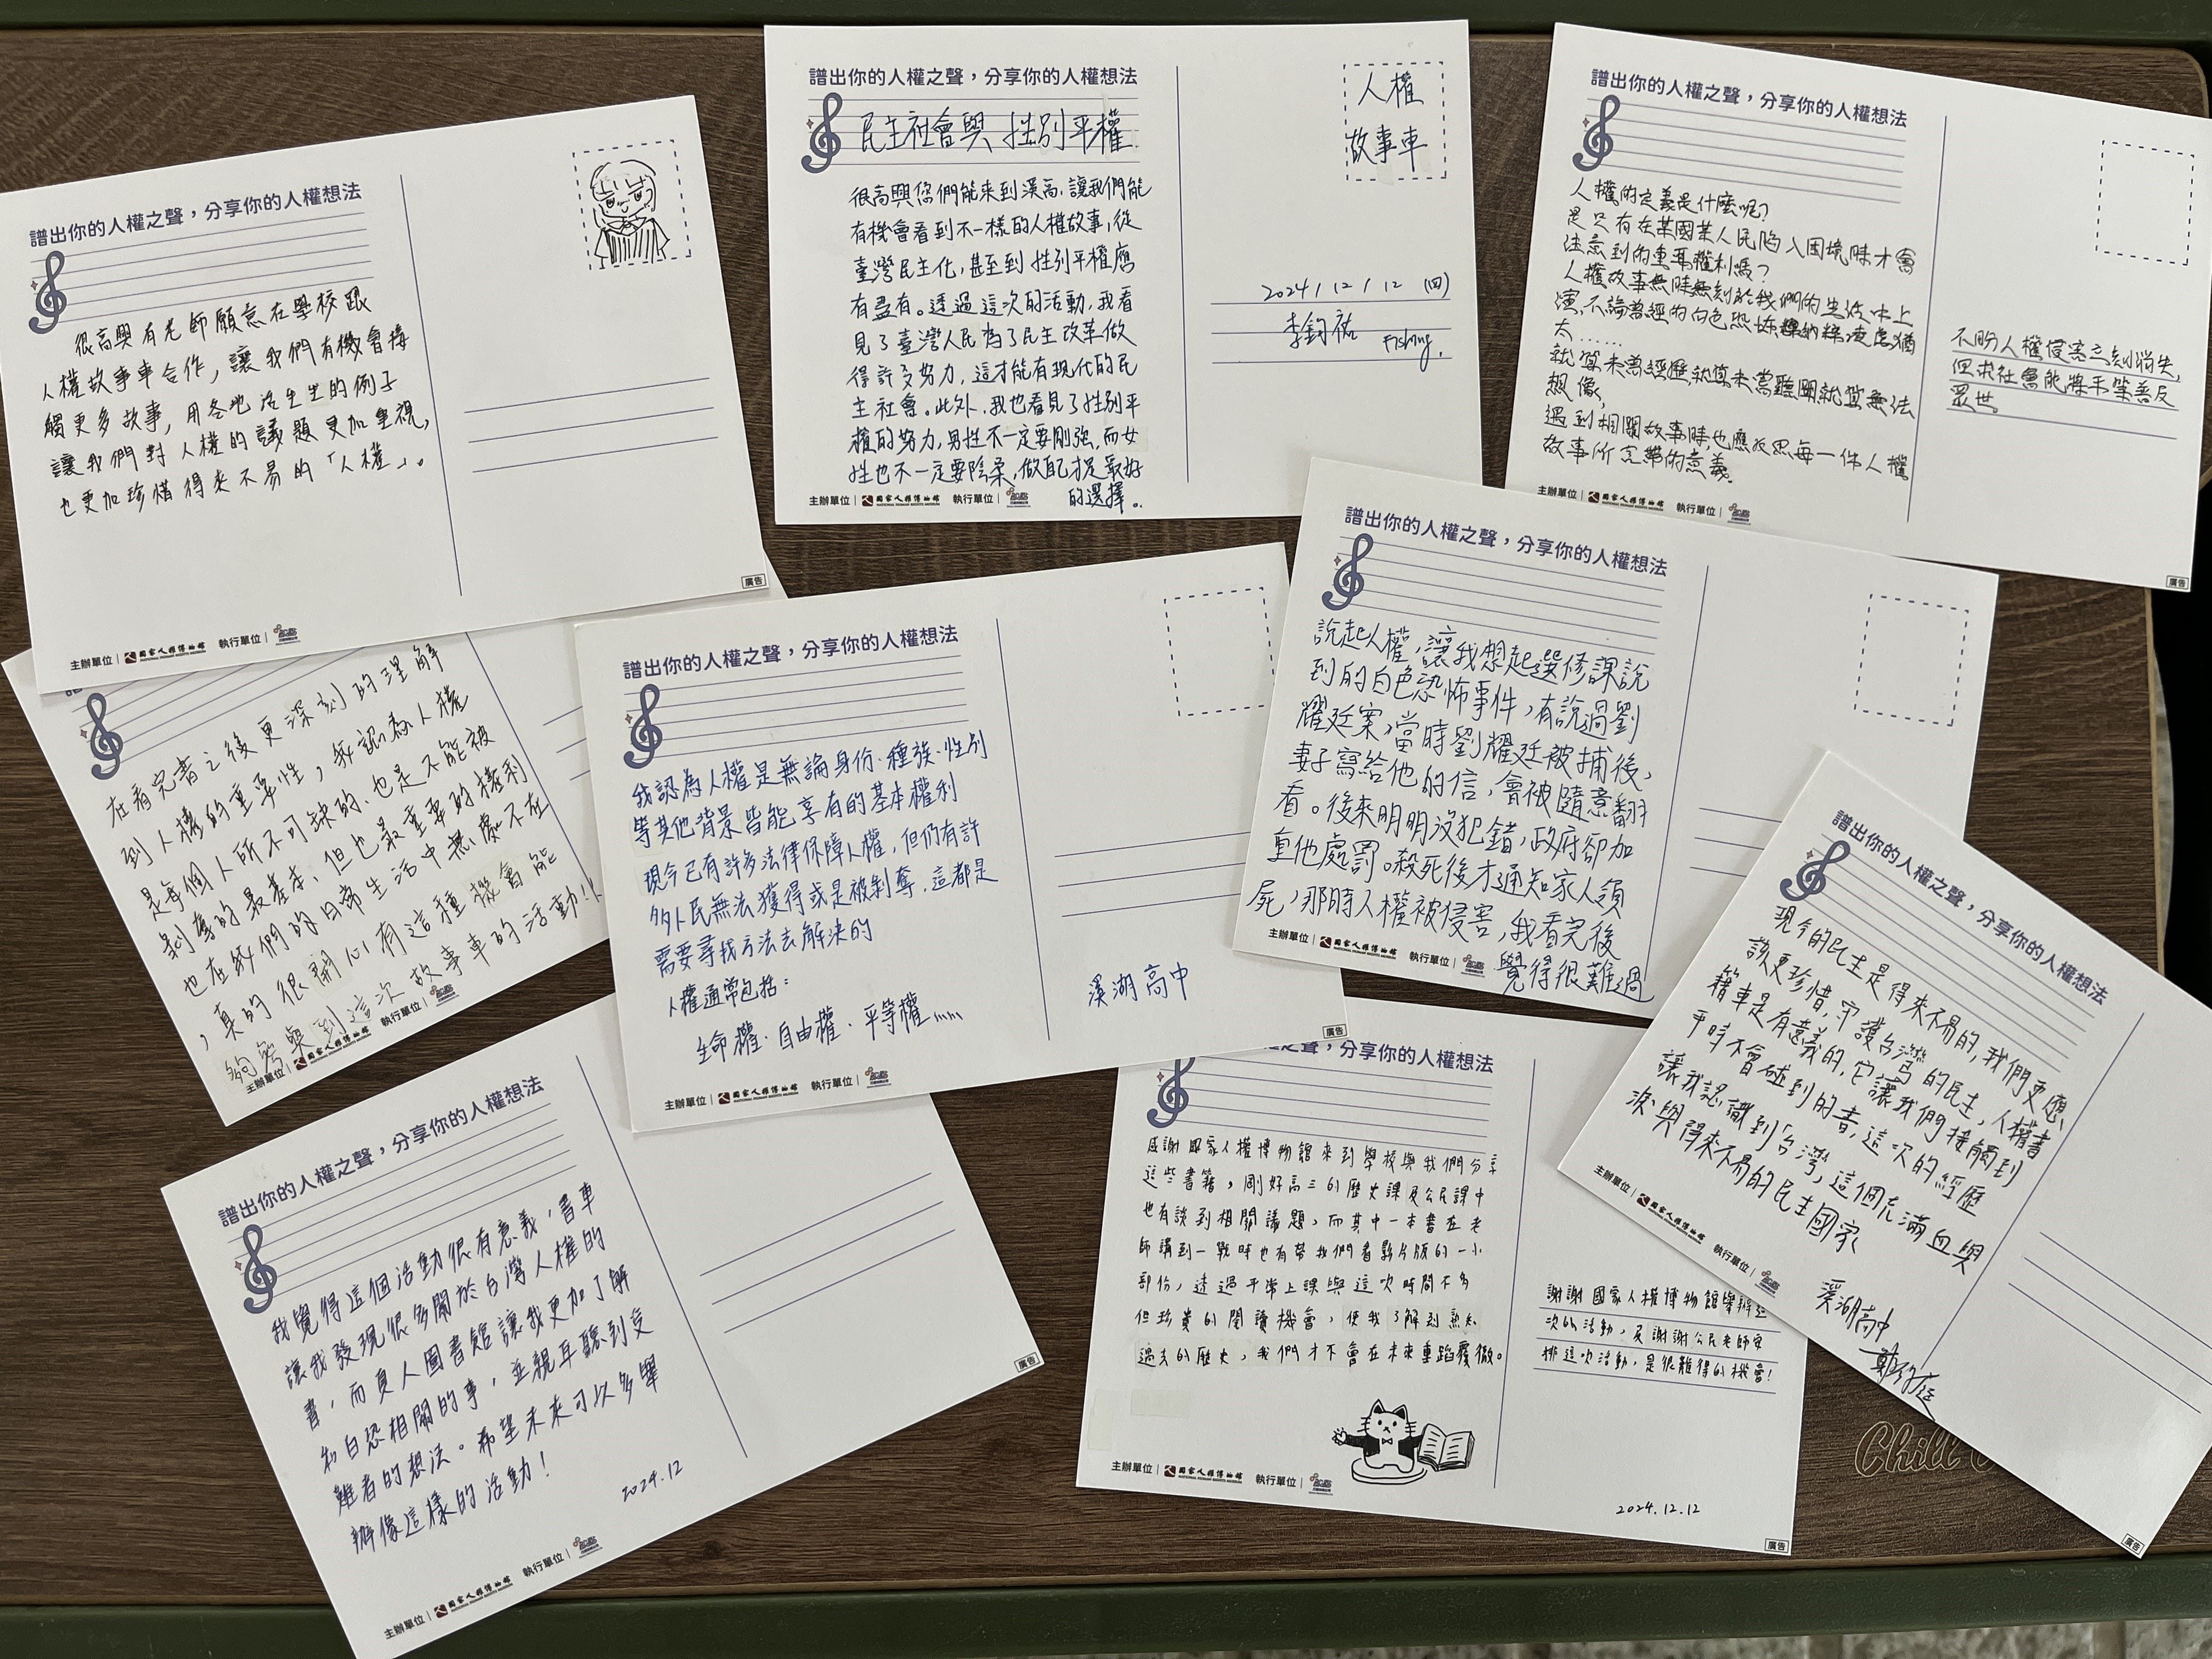 譜出你的人權之聲，分享你的人權想法
很高興有老師願意在學校跟
人權故事車合作，讓我們有機會接
觸更多故事，用各地活生生的例子
讓我們對人權的議題更加重視，
也更加珍惜得來不易的「人權」。
主辦單位｜國家人權博物館
NATIONAL HUMAN RIGHTS MUSEUM
執行單位｜
廣告
譜出你的人權之聲，分享你的人權想法
民主社會與性別平權
很高興您們能來到溪高，讓我們能
有機會看到不一樣的人權故事，從
臺灣民主化，甚至到性別平權應
有盡有。透過這次的活動，我看
見了臺灣人民為了民主改革做
得許多努力，這才能有現代的民
主社會。此外，我也看見了性別平
權的努力，男性不一定要剛強，而女
性也不一定要陰柔，做自己才是最好
的選擇。
人權
故事車
2024/12/12 (四)
李鈞祐 Fishing.
主辦單位｜國家人權博物館
NATIONAL HUMAN RIGHTS MUSEUM
執行單位｜
譜出你的人權之聲，分享你的人權想法
人權的定義是什麼呢？
是只有在某國某人民陷入困境時才會
注意到的重要權利嗎？
人權故事無時無刻於我們的生活中上
演，不論曾經的白色恐怖、納粹凌虐猶
太......
就算未曾經歷，就算未嘗聽聞就算無法
想像，
遇到相關故事時也應反思每一件人權
故事所完帶的意義。
不盼人權侵害立刻消失，
但求社會能將平等善良
眾世。
主辦單位｜國家人權博物館
執行單位｜
廣告
在看完書之後更深刻的理解
到人權的重要性，我認為人權
是每個人所不可缺的、也是不能被
剝奪的最基本、但也最重要的權利
也在我們的日常生活中無處不在
，真的很開心有這種機會能
夠參與到這次故事車的活動!!
主辦單位｜國家人權博物館
執行單位｜
譜出你的人權之聲，分享你的人權想法
我認為人權是無論身份、種族、性別
等其他背景皆能享有的基本權利
現今已有許多法律保障人權，但仍有許
多人民無法獲得或是被剝奪，這都是
需要尋找方法去解決的
人權通常包括：
生命權、自由權、平等權......
溪湖高中
主辦單位｜國家人權博物館
NATIONAL HUMAN RIGHTS MUSEUM
執行單位｜
廣告
譜出你的人權之聲，分享你的人權想法
說起人權，讓我想起選修課說
到的白色恐怖事件，有說過劉
耀廷案，當時劉耀廷被捕後，
妻子寫給他的信，會被隨意翻
看。後來明明沒犯錯，政府卻加
重他處罰。殺死後才通知家人領
屍，那時人權被侵害，我看完後
覺得很難過
主辦單位｜國家人權博物館
執行單位｜
譜出你的人權之聲，分享你的人權想法
現今的民主是得來不易的，我們更應
該更珍惜，守護台灣的民主，人權書
籍車是有意義的，它讓我們接觸到
平時不會碰到的書，這次的經歷
讓我認識到「台灣」這個充滿血與
淚與得來不易的民主國家
溪湖高中
主辦單位｜國家人權博物館
執行單位｜
廣告
譜出你的人權之聲，分享你的人權想法
我覺得這個活動很有意義，書車
讓我發現很多關於台灣人權的
書，而真人圖書館讓我更加了解
到白恐相關的事，並親耳聽到受
難者的想法。希望未來可以多舉
辦像這樣的活動！
2024.12
主辦單位｜國家人權博物館
執行單位｜
廣告
之聲，分享你的人權想法
感謝國家人權博物館來到學校與我們分享
這些書籍，剛好高三的歷史課及公民課中
也有談到相關議題，而其中一本書在老
師講到一戰時也有帶我們看影片版的一小
部份，透過平常上課與這次時間不多
但珍貴的閱讀機會，使我了解到熟知
過去的歷史，我們才不會在未來重蹈覆徹。
謝謝國家人權博物館舉辦這
次的活動，及謝謝公民老師安
排這次活動，是很難得的機會！
2024.12.12
主辦單位｜國家人權博物館
NATIONAL HUMAN RIGHTS MUSEUM
執行單位｜
廣告
Chill